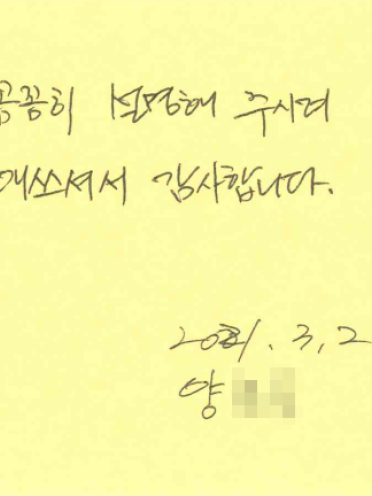 꼼꼼히 설명해 주시려
애쓰셔서 감사합니다.
2021. 3. 2
양